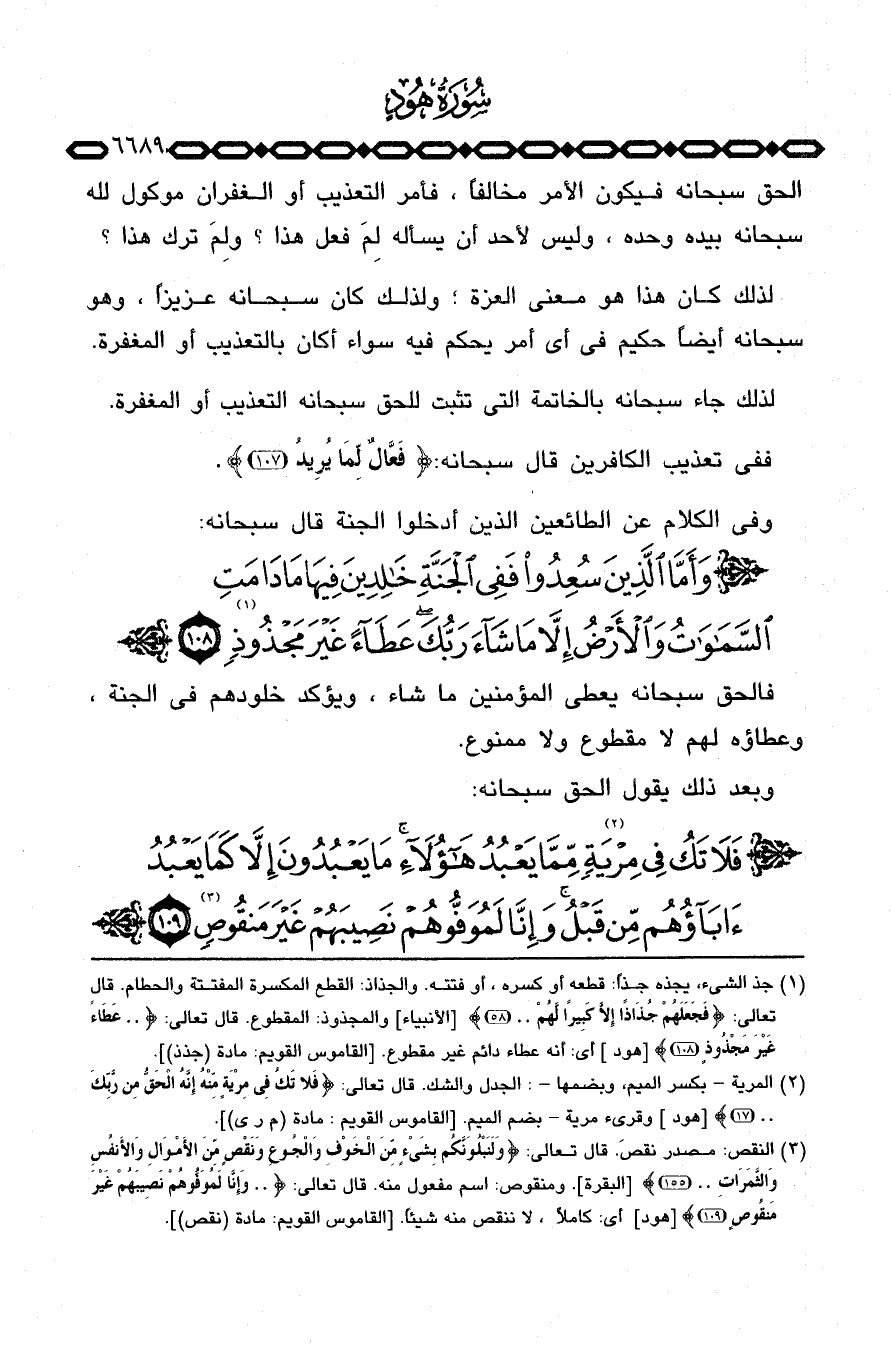 سُورَةُ هُودٍ
٦٦٨٩
الحق سبحانه فيكون الأمر مخالفاً ، فأمر التعذيب أو الغفران موكول لله
سبحانه بيده وحده ، وليس لأحد أن يسأله لِمَ فعل هذا ؟ ولِمَ ترك هذا ؟
لذلك كان هذا هو معنى العزة ؛ ولذلك كان سبحانه عزيزاً ، وهو
سبحانه أيضاً حكيم فى أى أمر يحكم فيه سواء أكان بالتعذيب أو المغفرة.
لذلك جاء سبحانه بالخاتمة التى تثبت للحق سبحانه التعذيب أو المغفرة.
ففى تعذيب الكافرين قال سبحانه:﴿ فَعَّالٌ لِّمَا يُرِيدُ (١٠٧)﴾ .
وفى الكلام عن الطائعين الذين أدخلوا الجنة قال سبحانه:
﴿وَأَمَّا ٱلَّذِينَ سُعِدُواْ فَفِى ٱلْجَنَّةِ خَٰلِدِينَ فِيهَا مَا دَامَتِ
ٱلسَّمَٰوَٰتُ وَٱلْأَرْضُ إِلَّا مَا شَآءَ رَبُّكَۖ عَطَآءً غَيْرَ مَجْذُوذٍ (١) (١٠٨)﴾
فالحق سبحانه يعطى المؤمنين ما شاء ، ويؤكد خلودهم فى الجنة ،
وعطاؤه لهم لا مقطوع ولا ممنوع.
وبعد ذلك يقول الحق سبحانه:
﴿فَلَا تَكُ فِى مِرْيَةٍ (٢) مِّمَّا يَعْبُدُ هَٰٓؤُلَآءِۚ مَا يَعْبُدُونَ إِلَّا كَمَا يَعْبُدُ
ءَابَآؤُهُم مِّن قَبْلُۚ وَإِنَّا لَمُوَفُّوهُمْ نَصِيبَهُمْ غَيْرَ مَنقُوصٍ (٣) (١٠٩)﴾
(١) جذ الشىء، يجذه جذاً: قطعه أو كسره ، أو فتته. والجذاذ: القطع المكسرة المفتتة والحطام. قال
تعالى: ﴿ فَجَعَلَهُمْ جُذَاذًا إِلاَّ كَبِيرًا لَّهُمْ .. (٥٨)﴾ [الأنبياء] والمجذوذ: المقطوع. قال تعالى: ﴿ .. عَطَاءً
غَيْرَ مَجْذُوذٍ (١٠٨)﴾ [هود ] أى: أنه عطاء دائم غير مقطوع. [القاموس القويم: مادة (جذذ)].
(٢) المرية – بكسر الميم، وبضمها – : الجدل والشك. قال تعالى: ﴿ فَلا تَكُ فِى مِرْيَةٍ مِّنْهُ إِنَّهُ الْحَقُّ مِن رَّبِّكَ
.. (١٧)﴾ [هود ] وقرىء مرية – بضم الميم. [القاموس القويم : مادة (م ر ى)].
(٣) النقص: مصدر نقصَ. قال تعالى: ﴿ وَلَنَبْلُوَنَّكُم بِشَىْءٍ مِّنَ الْخَوْفِ وَالْجُوعِ وَنَقْصٍ مِّنَ الأَمْوَالِ وَالأَنفُسِ
وَالثَّمَرَاتِ .. (١٥٥)﴾ [البقرة]. ومنقوص: اسم مفعول منه. قال تعالى: ﴿ .. وَإِنَّا لَمُوَفُّوهُمْ نَصِيبَهُمْ غَيْرَ
مَنقُوصٍ (١٠٩)﴾ [هود] أى: كاملاً ، لا ننقص منه شيئاً. [القاموس القويم: مادة (نقص)].